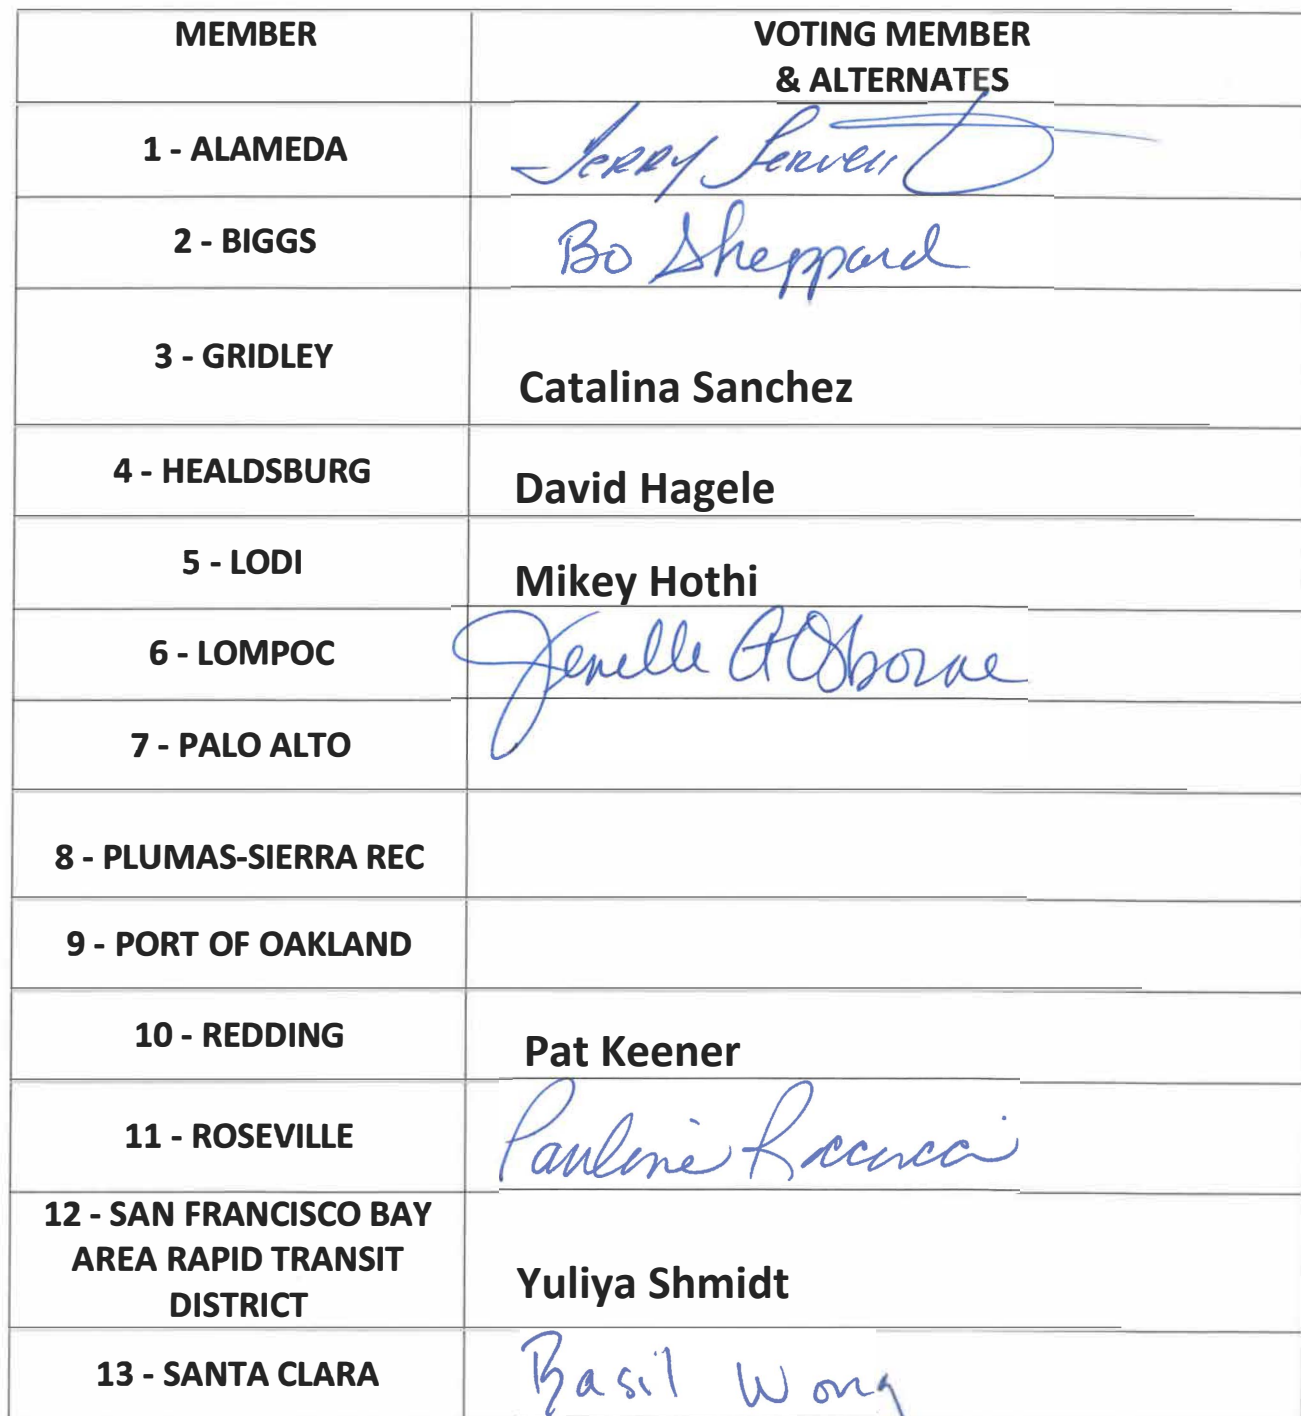 MEMBER
VOTING MEMBER
& ALTERNATES
1 - ALAMEDA
Jerry Servent
2 - BIGGS
Bo Sheppard
3 - GRIDLEY
Catalina Sanchez
4 - HEALDSBURG
David Hagele
5 - LODI
Mikey Hothi
6 - LOMPOC
Jenelle A Osborne
7 - PALO ALTO
8 - PLUMAS-SIERRA REC
9 - PORT OF OAKLAND
10 - REDDING
Pat Keener
11 - ROSEVILLE
Pauline Roccucci
12 - SAN FRANCISCO BAY
AREA RAPID TRANSIT
DISTRICT
Yuliya Shmidt
13 - SANTA CLARA
Basil Wong